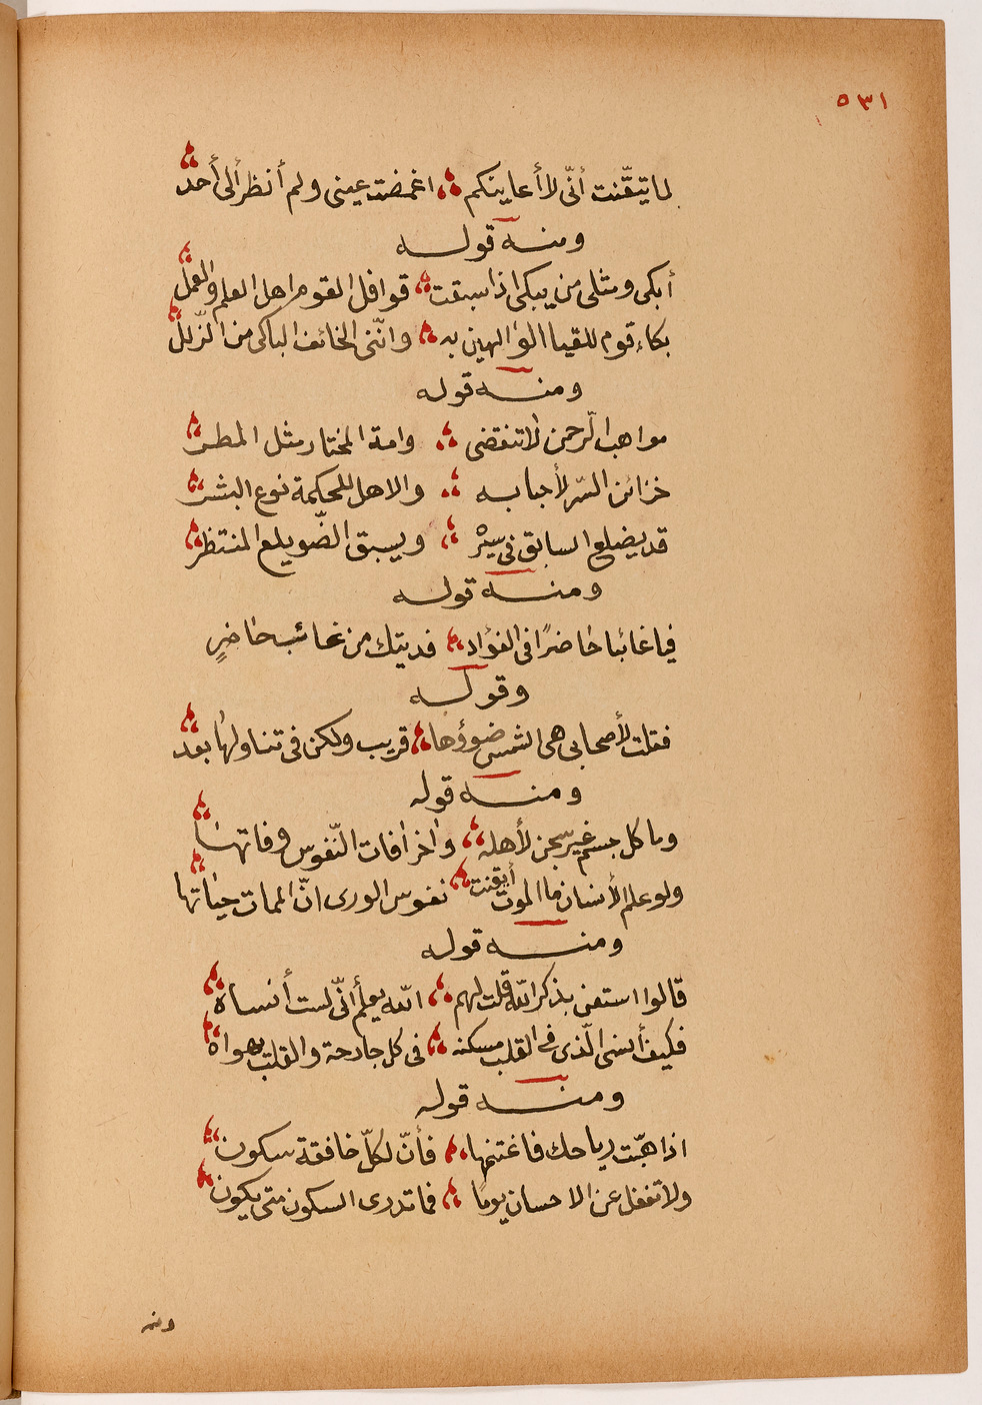 ٥٣١
لما تيقّنت أنّى لا أعاينكم ؞ اغمضت عينى ولم أنظر ألى أحد
ومنه قوله
أبكى ومثلى من يبكى اذا سبقت ؞ قوافل القوم اهل العلم والعمل
بكاء قوم للقيا الوالهين به ؞ وانّنى الخائف الباكى من الزّلل
ومنه قوله
مواهب الرّحمن لا تنقضى ؞ وامة المختار مثل المطر
خزائن السّر لأحبابه ؞ والاهل للحكمة نوع البشر
قد يضلع السابق فى سيره ؞ ويسبق الضّويلع المنتظر
ومنه قوله
فيا غائبا حاضرًا فى الفؤاد ؞ فديتك من غائب حاضرٍ
وقوله
فقلت لأصحابى هى الشمس ضوؤها ؞ قريب ولكن فى تناولها بعد
ومنه قوله
وما كل جسم غير سجن لأهله ؞ واخر افات النّفوس وفاتها
ولو علم الأنسان ما الموت أيقنت ؞ نفوس الورى انّ الممات حياتها
ومنه قوله
قالوا استعن بذكر الله قلت لهم ؞ الله يعلم أنّى لست أنساه
فكيف أنسى الّذى فى القلب مسكنه ؞ فى كل جارحة والقلب يهواه
ومنه قوله
اذا هبّت رياحك فاغتنمها ؞ فأنّ لكلّ خافقة سكون
ولا تغفل عن الاحسان يوما ؞ فما تدرى السكون متى يكون
ومنه